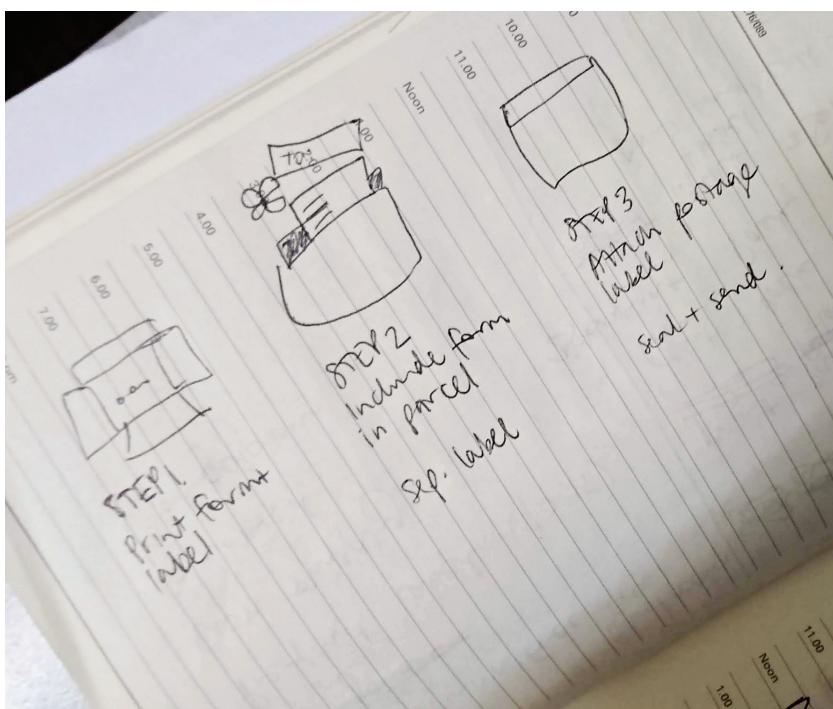 7.00
6.00
5.00
4.00
2.00
1.00
Noon
11.00
10.00
76/089
to:
STEP 1.
Print form +
label
STEP 2
Include form
in parcel
sep. label
STEP 3
Attach postage
label
seal + send.
1.00
Noon
11.00